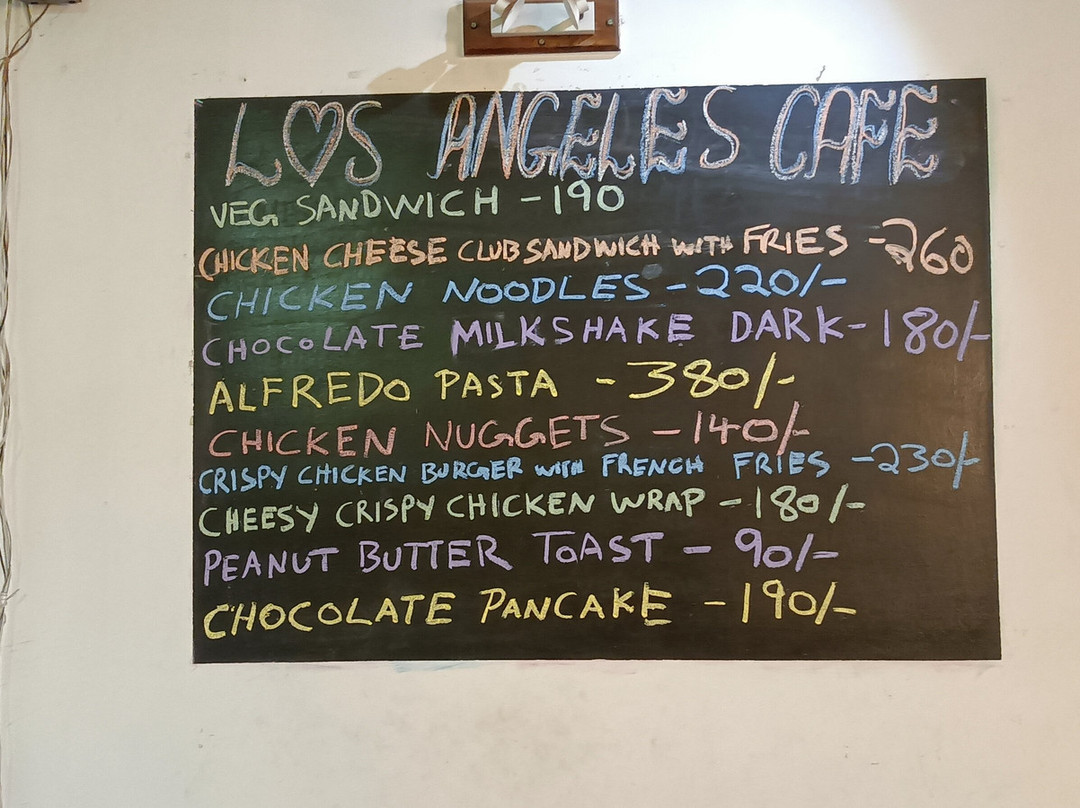 LOS ANGELES CAFE
VEG SANDWICH - 190
CHICKEN CHEESE CLUB SANDWICH WITH FRIES - 260
CHICKEN NOODLES - 220/-
CHOCOLATE MILKSHAKE DARK - 180/-
ALFREDO PASTA - 380/-
CHICKEN NUGGETS - 140/-
CRISPY CHICKEN BURGER WITH FRENCH FRIES - 230/-
CHEESY CRISPY CHICKEN WRAP - 180/-
PEANUT BUTTER TOAST - 90/-
CHOCOLATE PANCAKE - 190/-